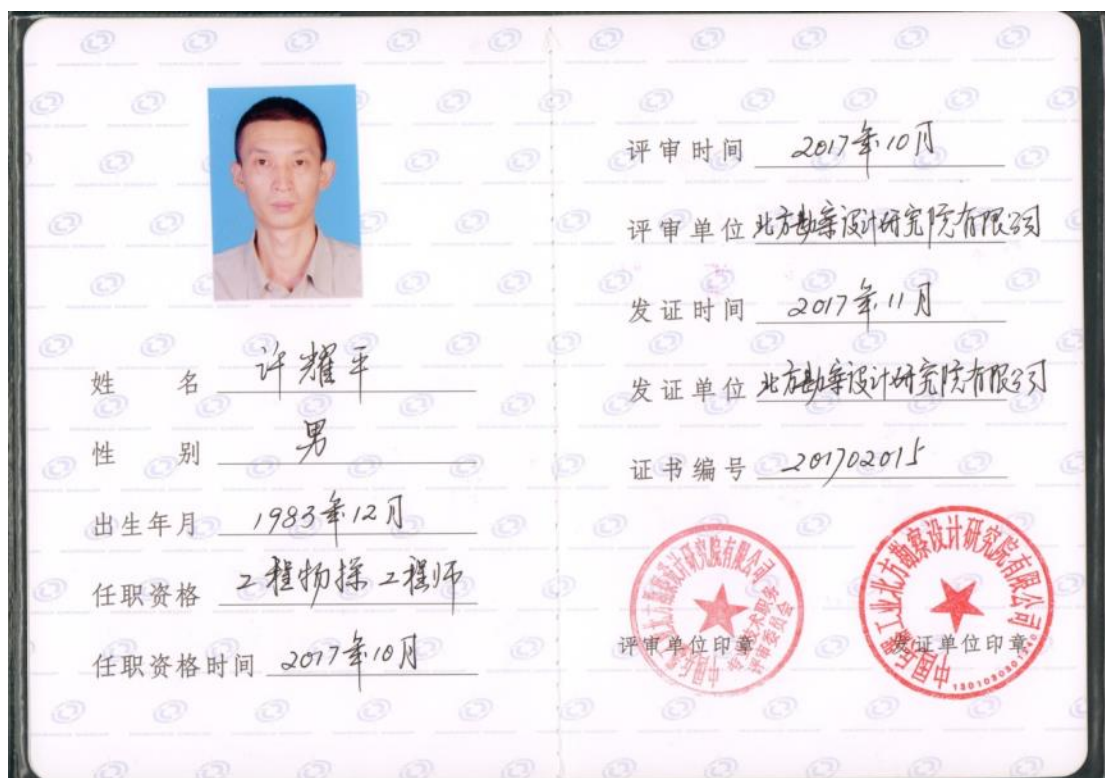 姓名 许耀平
性别 男
出生年月 1983年12月
任职资格 工程物探工程师
任职资格时间 2017年10月
评审时间 2017年10月
评审单位 北方勘察设计研究院有限公司
发证时间 2017年11月
发证单位 北方勘察设计研究院有限公司
证书编号 201702015
中国兵器工业北方勘察设计研究院有限公司
专业技术职务
评审委员会
评审单位印章
中国兵器工业北方勘察设计研究院有限公司
发证单位印章